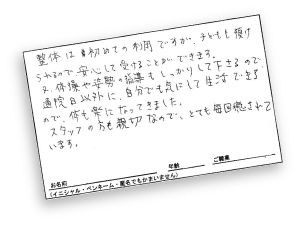 整体は初めての利用ですが、子どもも預け
られるので安心して受けることができます。
又、体操や姿勢の指導もしっかりして下さるので
通院日以外に、自分でも気にして生活できます
ので、体も楽になってきました。
スタッフの方も親切なので、とても毎回癒されて
います。
お名前
年齢
ご職業
(イニシャル・ペンネーム・匿名でもかまいません)